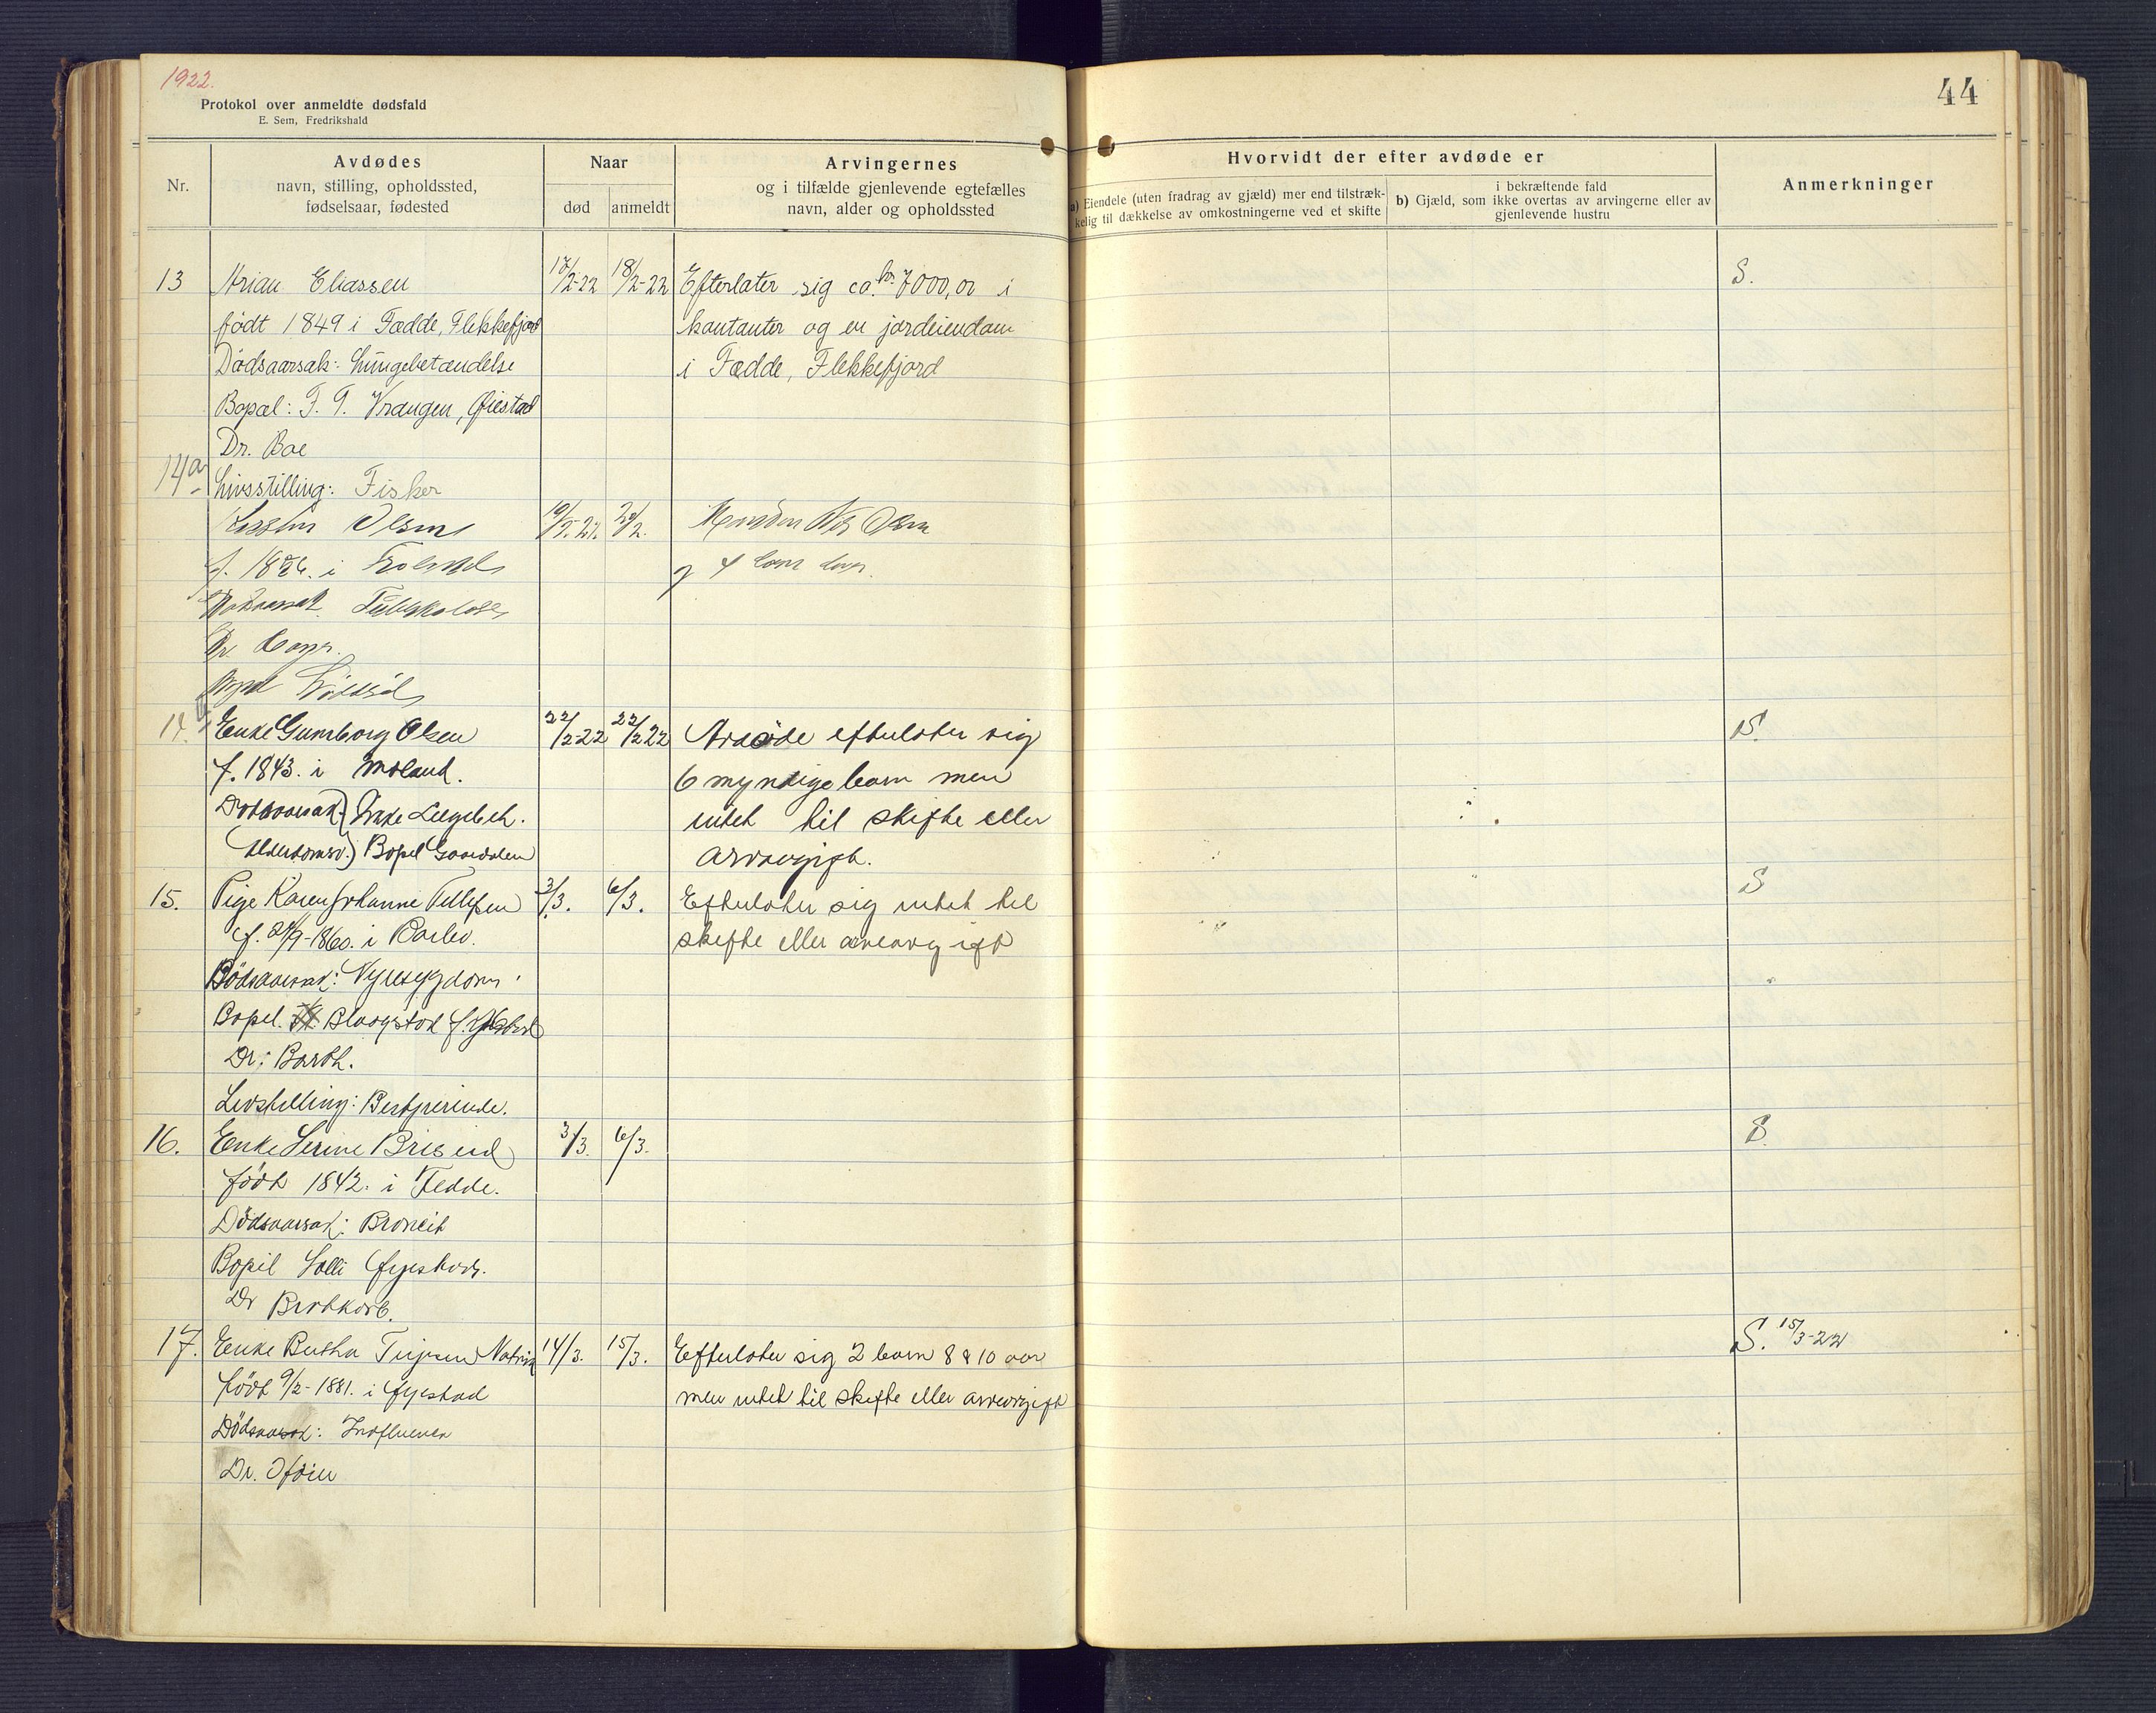 1922.
Protokol over anmeldte dødsfald
E. Sem, Fredrikshald
44
Nr.
Avdødes
navn, stilling, opholdssted,
fødselsaar, fødested
Naar
død
anmeldt
Arvingernes
og i tilfælde gjenlevende egtefælles
navn, alder og opholdssted
Hvorvidt der efter avdøde er
a) Eiendele (uten fradrag av gjæld) mer end tilstræk-
kelig til dækkelse av omkostningerne ved et skifte
i bekræftende fald
b) Gjæld, som ikke overtas av arvingerne eller av
gjenlevende hustru
Anmerkninger
13 Arian Eliassen 17/2-22 18/2-22 Efterlater sig ca. kr. 7000,00 i S.
født 1849 i Fædde, Flekkefjord kontanter og en jordeiendom
Dødsaarsak: Lungebetændelse i Fædde, Flekkefjord
Bopæl: F. G. Vrangen, Øiestad
Dr. Boe
14a Livsstilling: Fisker
Olsen Manden Olsen
f. i og 4 barn
Dødsaarsak Tuberkulose
Dr.
Bopæl
14 Enke Gunborg Olsen 22/2-22 22/2 22 Avdøde efterlater sig S.
f. 1843. i Moland. 6 myndige barn men
Dødsaarsak: intet til skifte eller
Alderdomsv.) Bopel arveavgift.
15. Pige Karen Johanne Tellefsen 3/3. 6/3. Efterlater sig intet til S
f. 24/9-1860. i Barbo. skifte eller arveavgift
Dødsaarsak: Nyresygdom.
Bopel. Blaagstad
Dr: Barth.
Livsstilling: Bestyrerinde.
16. Enke Serine Briseid 3/3. 6/3. S.
født 1842. i Fedde.
Dødsaarsak: Bronkit
Bopel Lolli Øyestad.
Dr
17. Enke Bertha Natvig 14/3. 15/3. Efterlater sig 2 barn 8 & 10 aar S. 15/3-22
født 9/2-1881. i Øyestad men intet til skifte eller arveavgift
Dødsaarsak: Influensa
Dr.